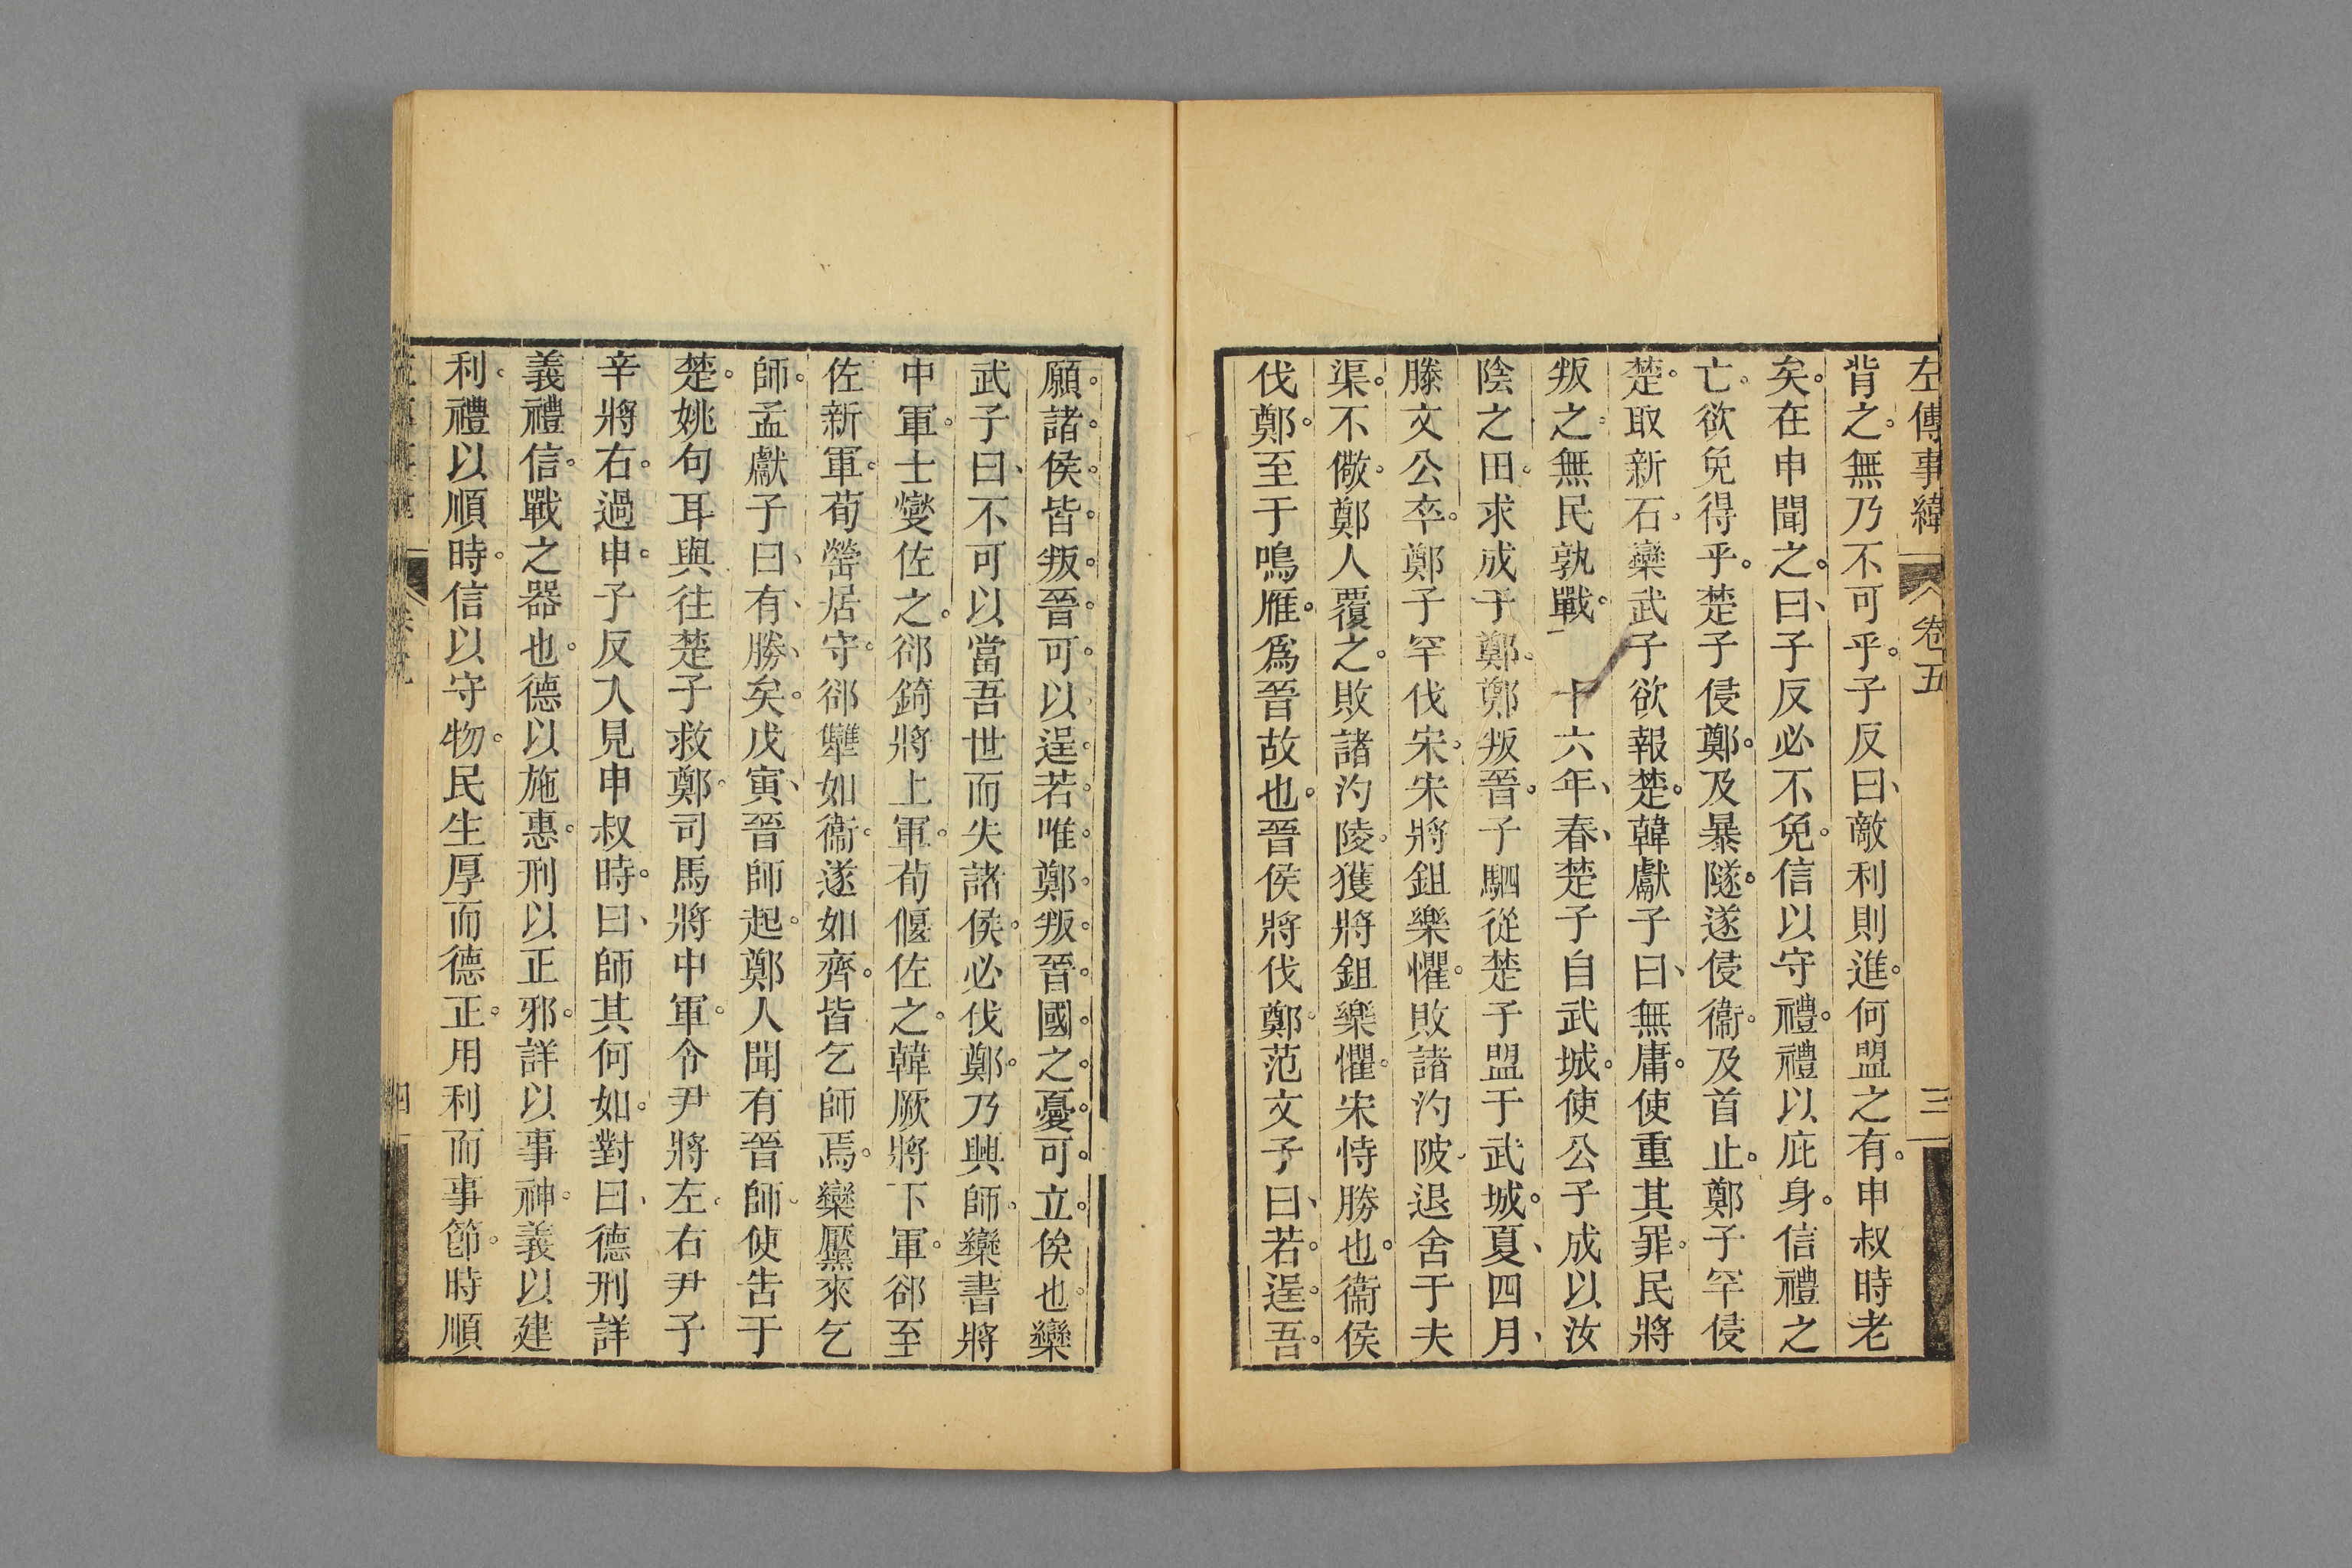 左傳事緯 卷五 三
背之。無乃不可乎。子反曰、敵利則進。何盟之有。申叔時老
矣。在申聞之。曰、子反必不免。信以守禮。禮以庇身。信禮之
亡。欲免得乎。楚子侵鄭。及暴隧。遂侵衞。及首止。鄭子罕侵
楚。取新石。欒武子欲報楚。韓獻子曰、無庸。使重其罪。民將
叛之。無民孰戰。 十六年、春、楚子自武城。使公子成以汝
陰之田。求成于鄭。鄭叛晉。子駟從楚子盟于武城。夏、四月、
滕文公卒。鄭子罕伐宋。宋將鉏樂懼。敗諸汋陂。退舍于夫
渠。不儆。鄭人覆之。敗諸汋陵。獲將鉏樂懼。宋恃勝也。衞侯
伐鄭。至于鳴雁。爲晉故也。晉侯將伐鄭。范文子曰、若。逞。吾。
願。諸。侯。皆。叛。晉。可。以逞。若。唯。鄭。叛。晉。國。之。憂。可。立。俟也。欒
武子曰、不可以當吾世而失諸侯。必伐鄭。乃興師。欒書將
中軍。士燮佐之。郤錡將上軍。荀偃佐之。韓厥將下軍。郤至
佐新軍。荀罃居守。郤犨如衞。遂如齊。皆乞師焉。欒黶來乞
師。孟獻子曰、有、勝、矣。戊寅、晉師起。鄭人聞有晉師。使吿于
楚。姚句耳與往楚子救鄭。司馬將中軍。令尹將左。右尹子
辛將右。過申。子反入見申叔時。曰、師其何如。對曰、德刑詳
義禮信。戰之器也。德以施惠。刑以正邪。詳以事神。義以建
利。禮以順時。信以守物。民生厚而德正。用利而事節。時順
四